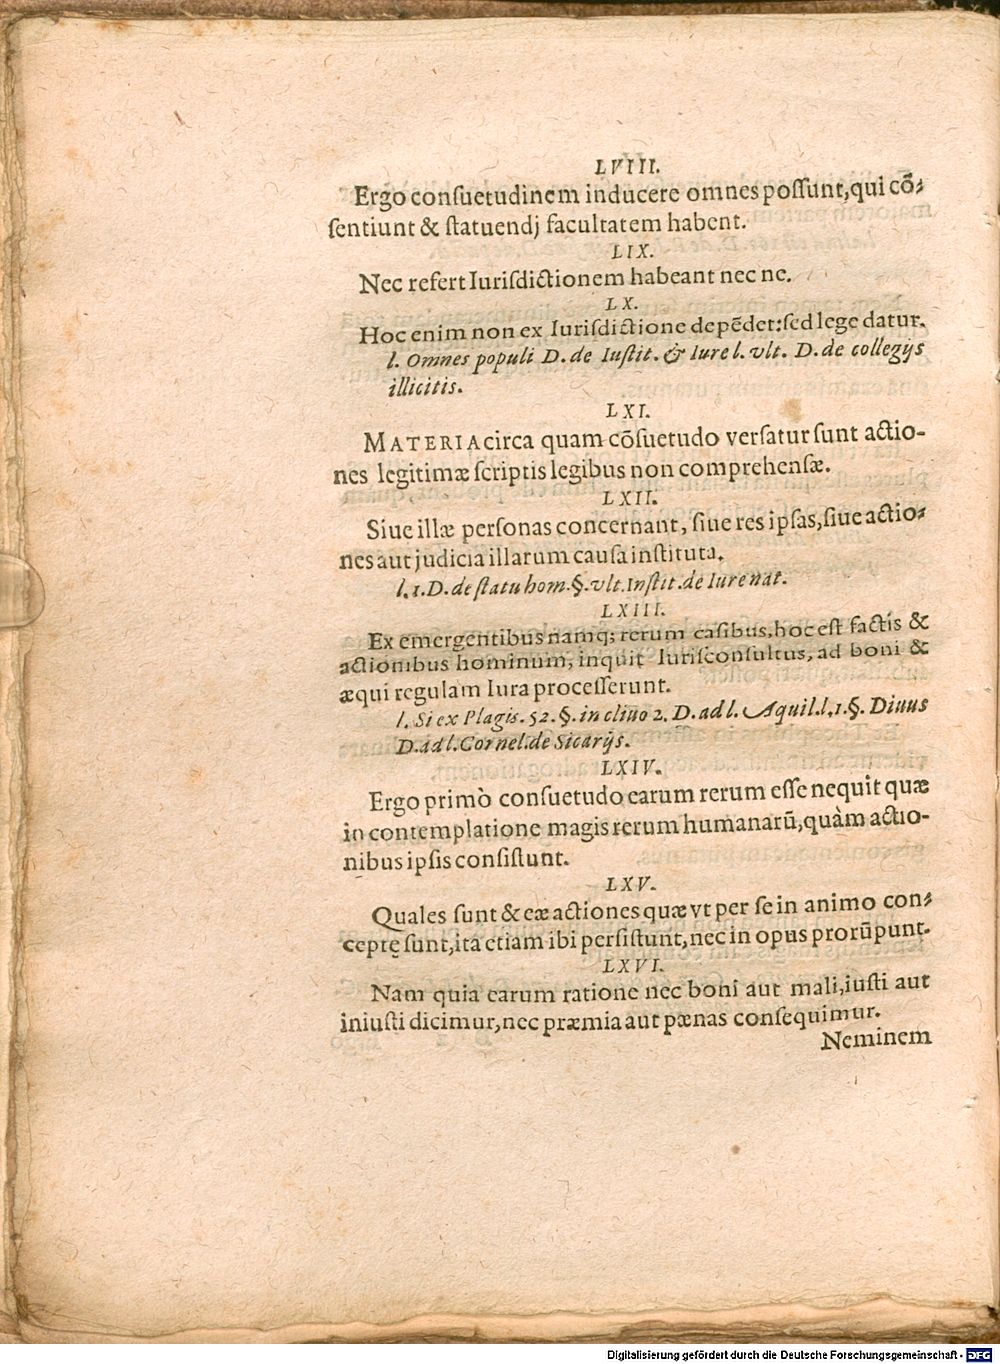 LVIII.
Ergo consuetudinem inducere omnes possunt, qui cõ-
sentiunt & statuendj facultatem habent.
LIX.
Nec refert Iurisdictionem habeant nec ne.
LX.
Hoc enim non ex Iurisdictione depẽdet: sed lege datur.
l. Omnes populi D. de Iustit. & Iure l. vlt. D. de collegijs
illicitis.
LXI.
MATERIA circa quam cõsuetudo versatur sunt actio-
nes legitimæ scriptis legibus non comprehensæ.
LXII.
Siue illæ personas concernant, siue res ipsas, siue actio-
nes aut judicia illarum causa instituta.
l. 1. D. de statu hom. §. vlt. Instit. de Iure nat.
LXIII.
Ex emergentibus namq; rerum casibus, hoc est factis &
actionibus hominum, inquit Iurisconsultus, ad boni &
æqui regulam Iura processerunt.
l. Si ex Plagis. 52. §. in cliuo 2. D. ad l. Aquil. l. 1. §. Diuus
D. ad l. Cornel. de Sicarijs.
LXIV.
Ergo primò consuetudo earum rerum esse nequit quæ
in contemplatione magis rerum humanarũ, quàm actio-
nibus ipsis consistunt.
LXV.
Quales sunt & eæ actiones quæ vt per se in animo con-
ceptę sunt, ita etiam ibi persistunt, nec in opus prorũpunt.
LXVI.
Nam quia earum ratione nec boni aut mali, iusti aut
iniusti dicimur, nec præmia aut pænas consequimur.
Neminem
Digitalisierung gefördert durch die Deutsche Forschungsgemeinschaft - DFG